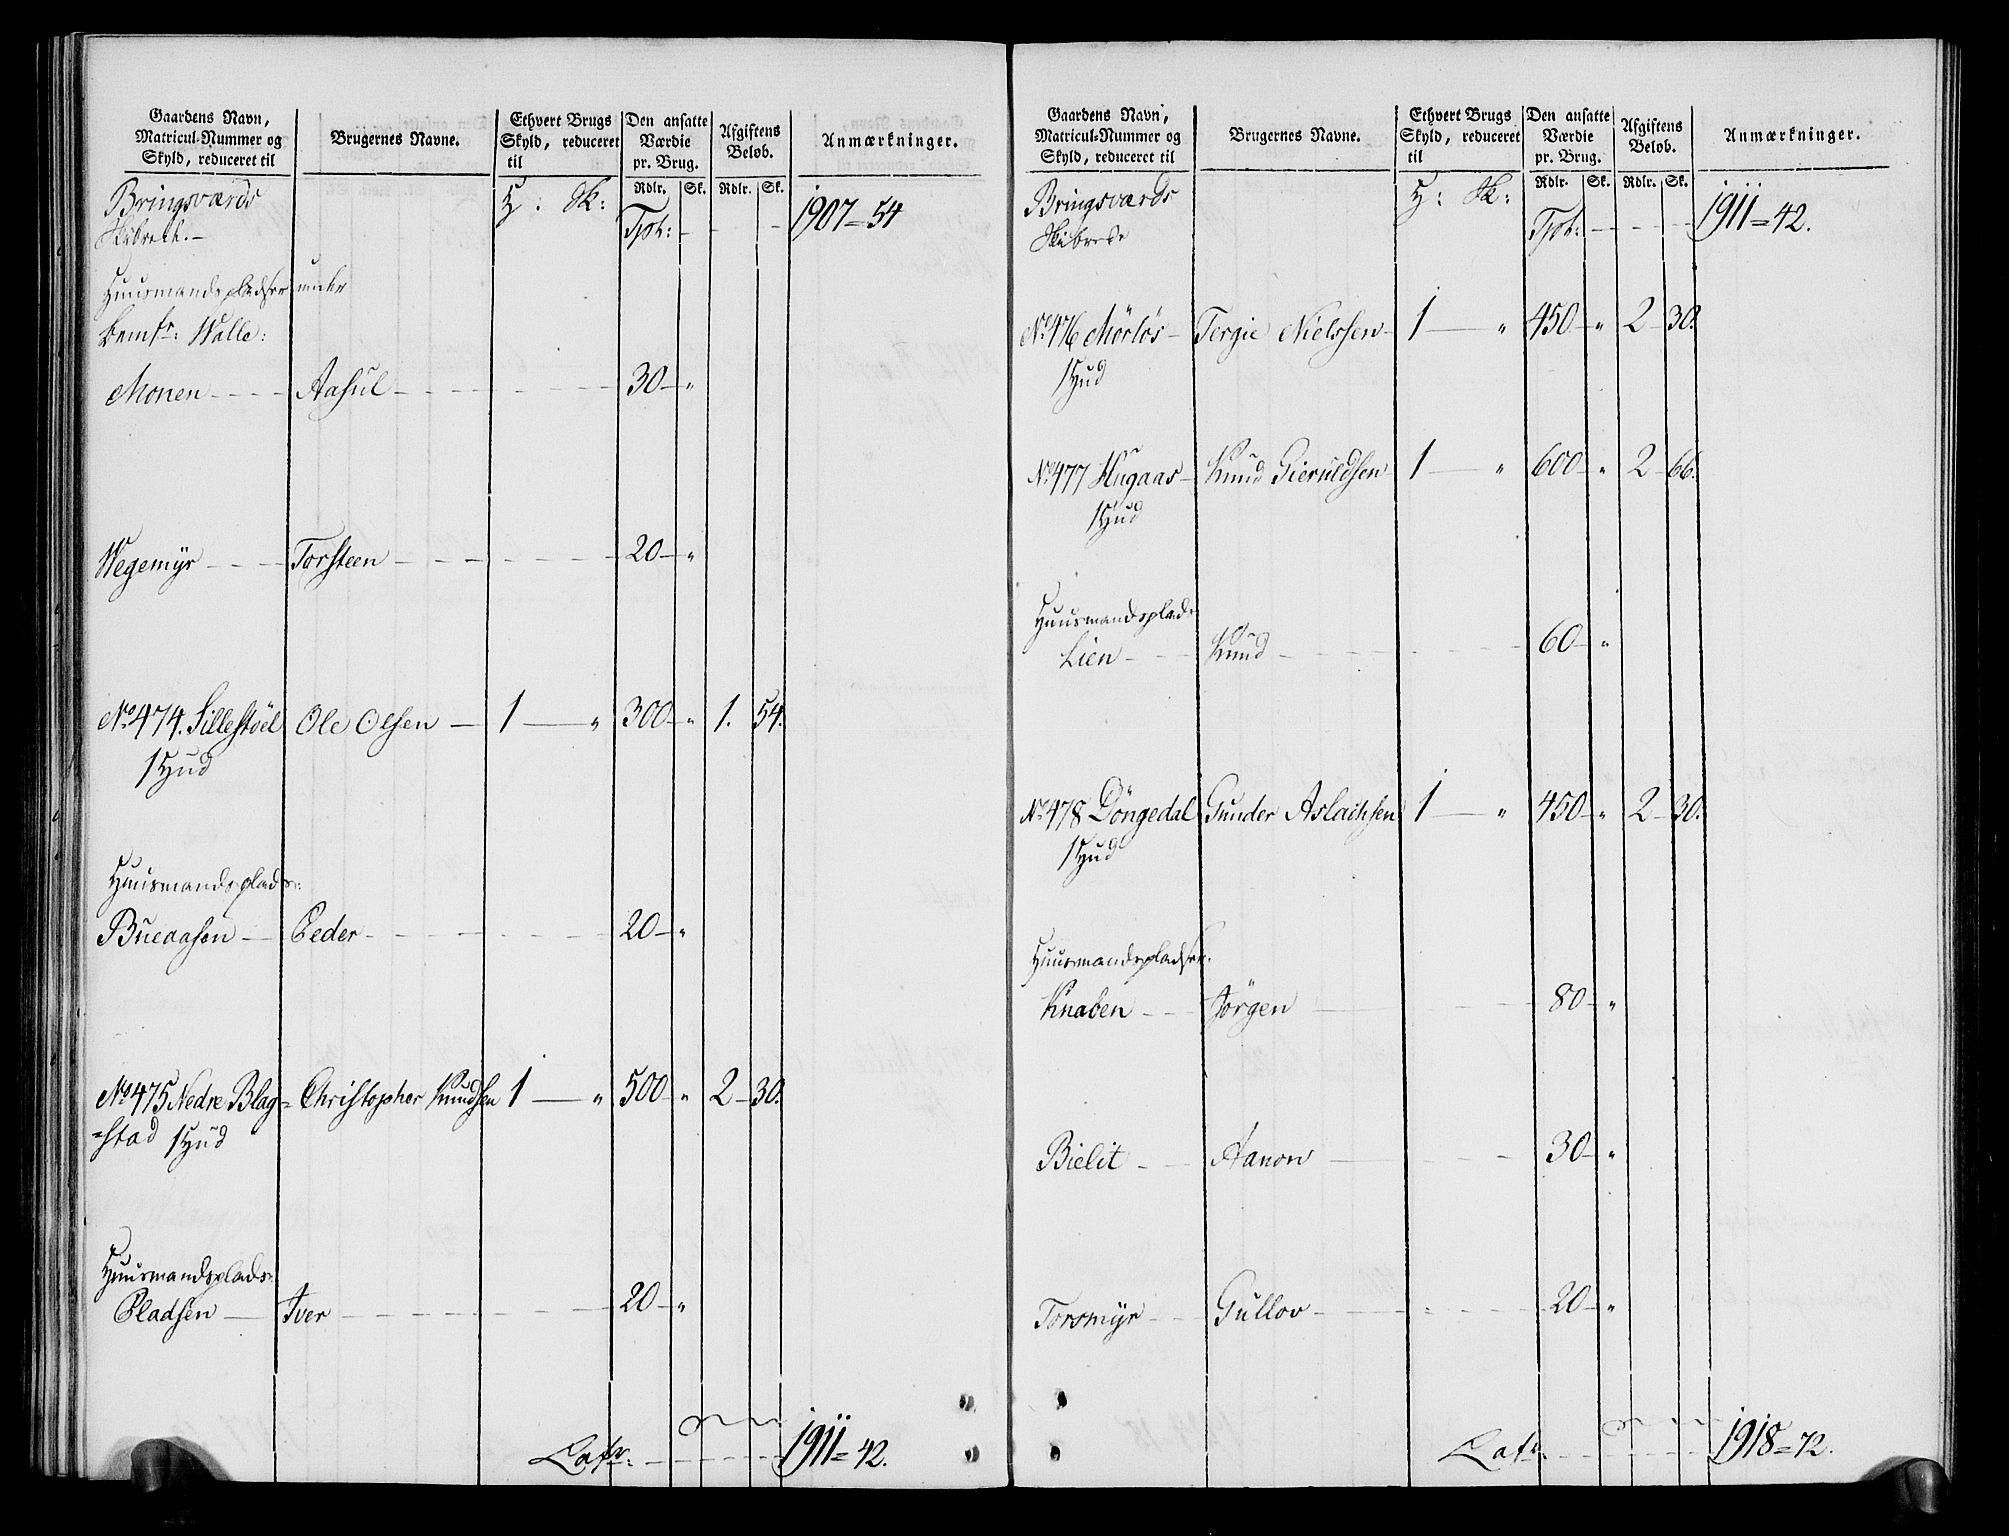 Gaardens Navn, Matricul-Nummer og Skyld, reduceret til | Brugernes Navne. | Ethvert Brugs Skyld, reduceret til | Den ansatte Værdie pr. Brug. | Afgiftens Beløb. | Anmærkninger.
Rdlr. Sk. Rdlr. Sk.
Bringsværds H: Sk: Tpt: - - - 1907=54
Skibrede.-
Huusmandspladser under
bemte: Walle:
Monen - - - - Aasul - - - - 30 - "
Wegemyr - - - - Torsteen - - - - 20 - "
No 474. Sillestöel Ole Olsen - 1 - " 300 - " 1. 54.
1 Hud
Huusmandsplads:
Bueaasen - Peder - - - - 20 - "
No 475 Nedre Blag= Christopher Knudsen 1 - " 500 - " 2 - 30.
=stad 1 Hud
Huusmandsplads:
Pladsen - Iver - - - - 20 - "
Latr: - - - - 1911=42.
Gaardens Navn, Matricul-Nummer og Skyld, reduceret til | Brugernes Navne. | Ethvert Brugs Skyld, reduceret til | Den ansatte Værdie pr. Brug. | Afgiftens Beløb. | Anmærkninger.
Rdlr. Sk. Rdlr. Sk.
Bringsværds H: Sk: Tpt: - - - 1911=42.
Skibrede
No 476 Mörlös - Tergie Nielssen - 1 - " 450 - " 2 - 30.
1 Hud
No 477 Hugaas - Knud Gieruldsen 1 - " 600 - " 2 - 66.
1 Hud
Huusmandsplads:
Lien - - - Knud - - - - 60 - "
No 478 Döngedal Gunder Aslachsen 1 - " 450 - " 2 - 30.
1 Hud
Huusmandspladser.
Knaben - - - Jörgen - - - - 80 - "
Bielit - - - Aanon - - - - 30 - "
Torsmyr - - - Gullov - - - - 20 - "
Latr: - - - - 1918=72.